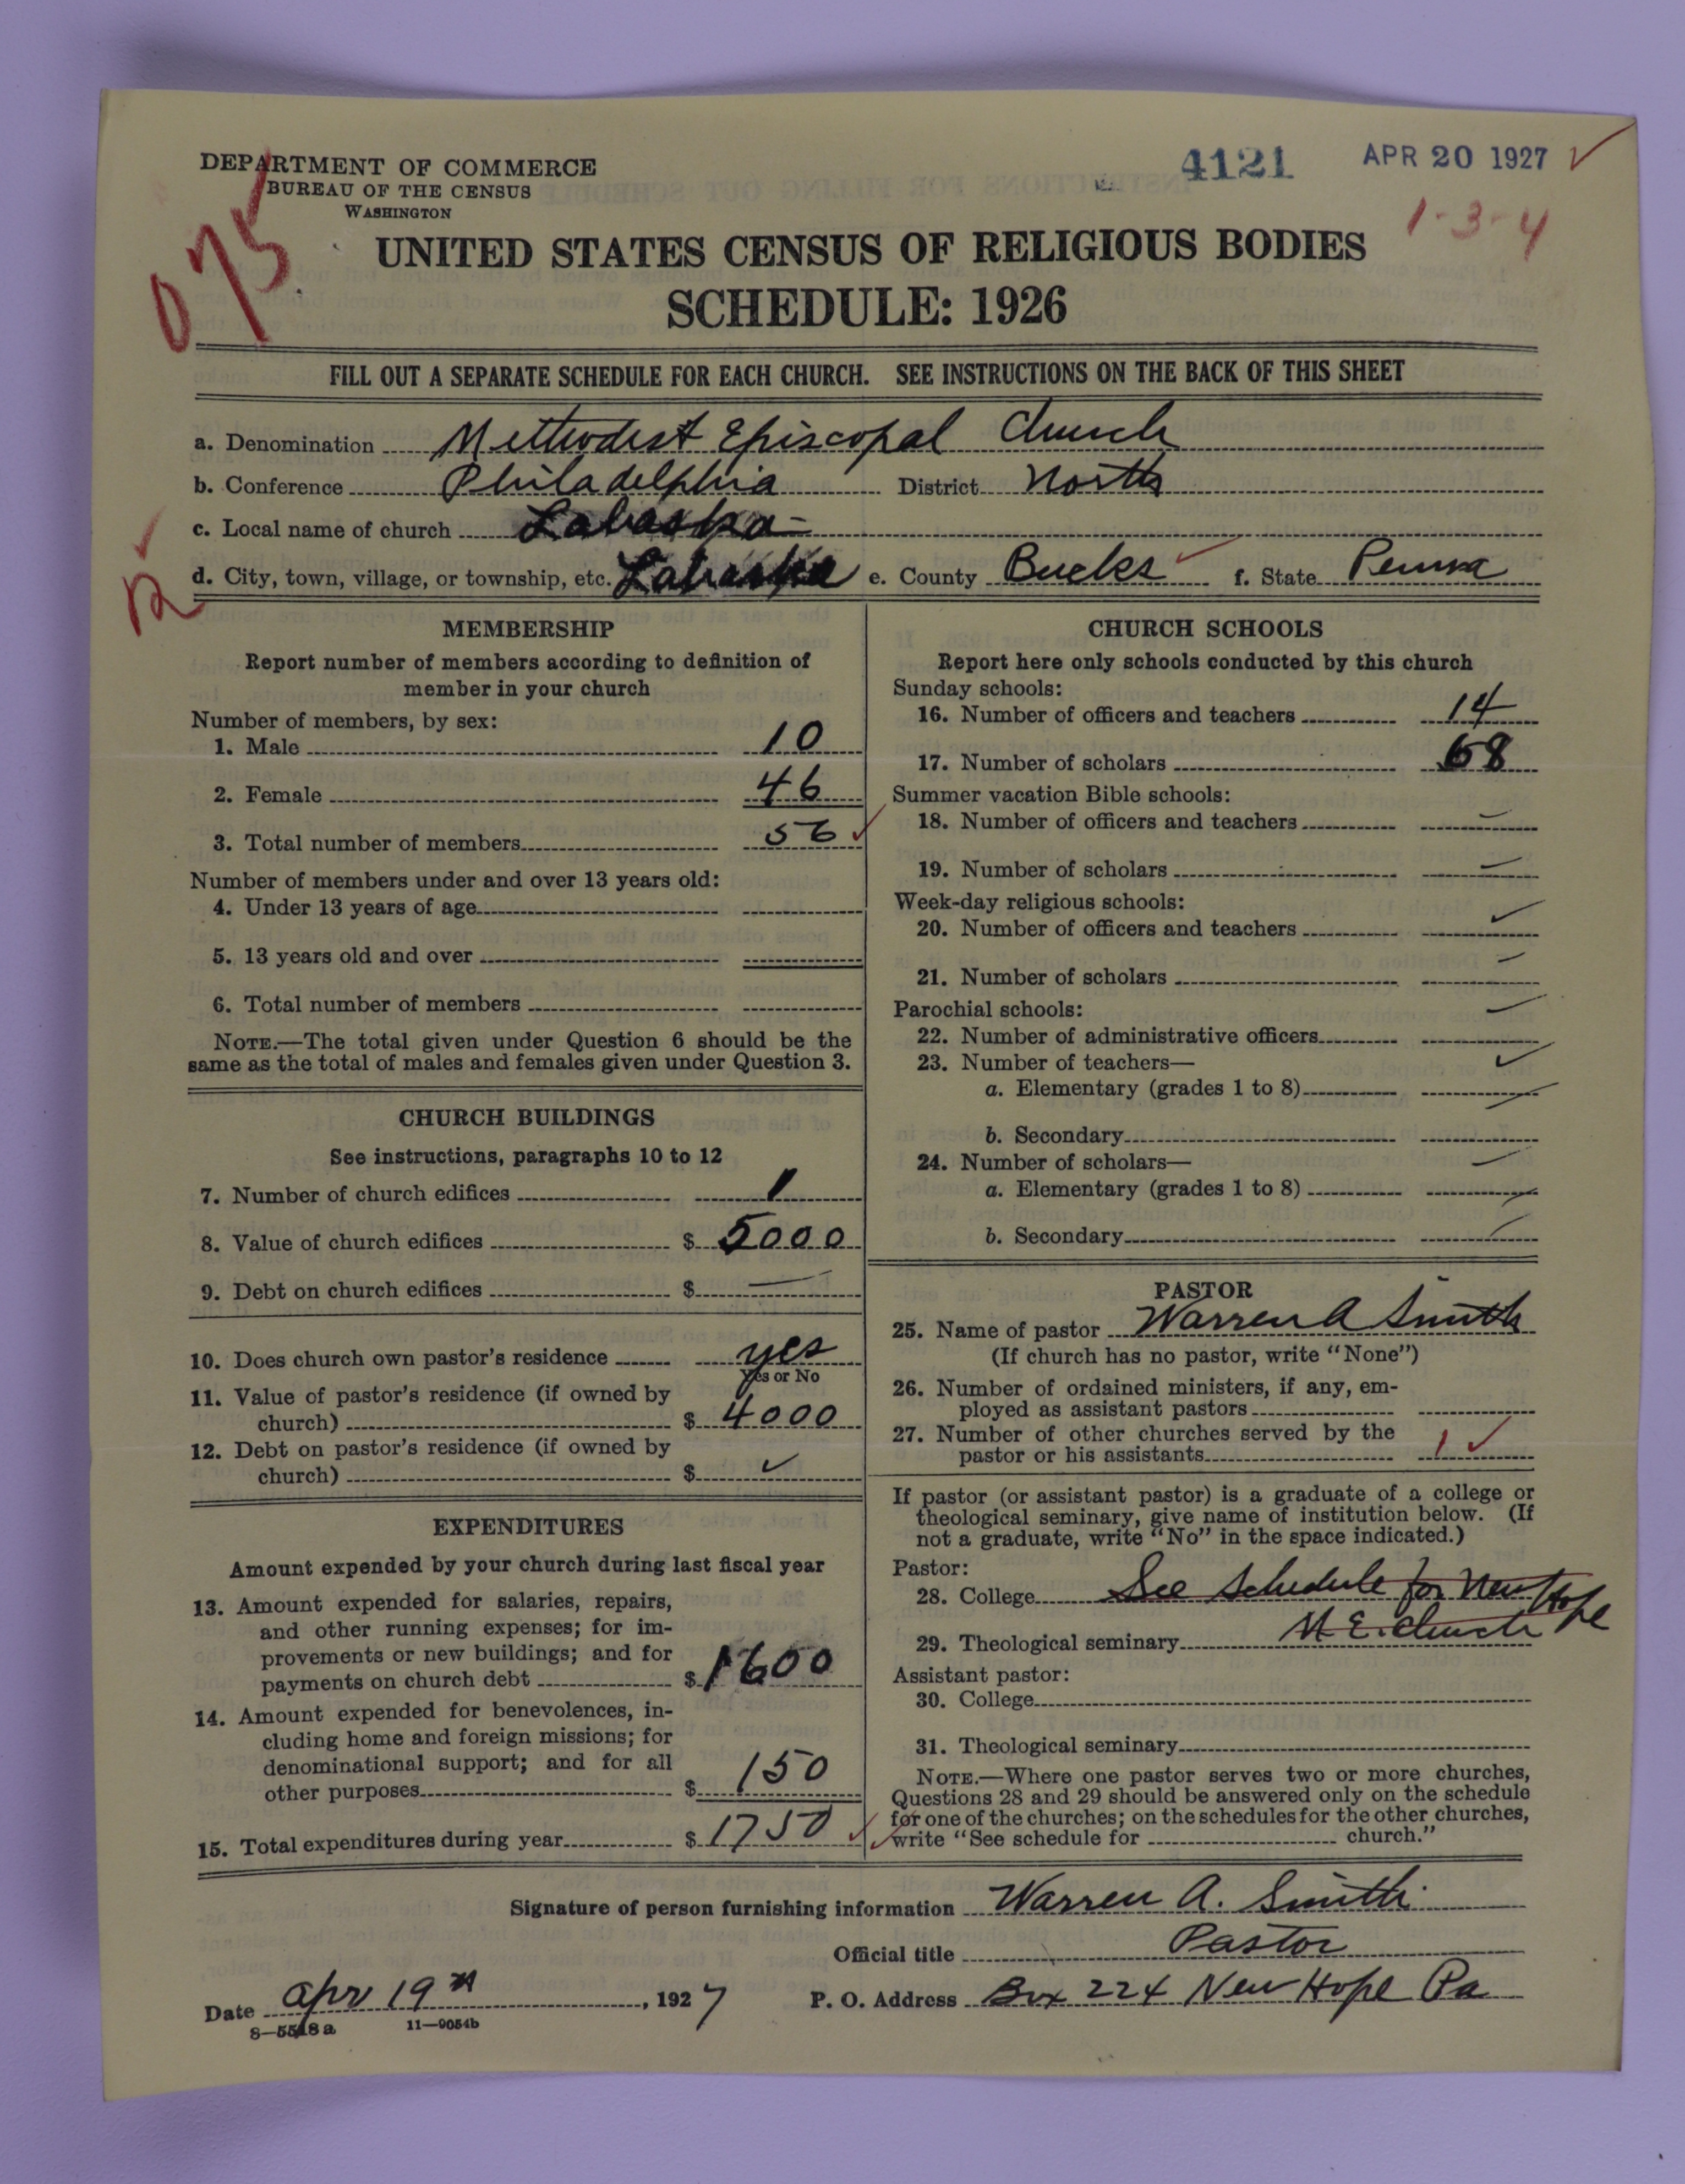 DEPARTMENT OF COMMERCE
BUREAU OF THE CENSUS
WASHINGTON
4121 APR 20 1927
1-3-4
075
UNITED STATES CENSUS OF RELIGIOUS BODIES
SCHEDULE: 1926
FILL OUT A SEPARATE SCHEDULE FOR EACH CHURCH. SEE INSTRUCTIONS ON THE BACK OF THIS SHEET
a. Denomination Methodist Episcopal Church
b. Conference Philadelphia District North
c. Local name of church Lahaska
d. City, town, village, or township, etc. Lahaska e. County Bucks f. State Penna
MEMBERSHIP
Report number of members according to definition of
member in your church
Number of members, by sex:
1. Male 10
2. Female 46
3. Total number of members 56
Number of members under and over 13 years old:
4. Under 13 years of age
5. 13 years old and over
6. Total number of members
NOTE.—The total given under Question 6 should be the
same as the total of males and females given under Question 3.
CHURCH BUILDINGS
See instructions, paragraphs 10 to 12
7. Number of church edifices 1
8. Value of church edifices $ 5000
9. Debt on church edifices $ —
10. Does church own pastor's residence yes
Yes or No
11. Value of pastor's residence (if owned by
church) $ 4000
12. Debt on pastor's residence (if owned by
church) $
EXPENDITURES
Amount expended by your church during last fiscal year
13. Amount expended for salaries, repairs,
and other running expenses; for im-
provements or new buildings; and for
payments on church debt $ 1600
14. Amount expended for benevolences, in-
cluding home and foreign missions; for
denominational support; and for all
other purposes $ 150
15. Total expenditures during year $ 1750
CHURCH SCHOOLS
Report here only schools conducted by this church
Sunday schools:
16. Number of officers and teachers 14
17. Number of scholars 68
Summer vacation Bible schools:
18. Number of officers and teachers —
19. Number of scholars —
Week-day religious schools:
20. Number of officers and teachers
21. Number of scholars —
Parochial schools:
22. Number of administrative officers —
23. Number of teachers—
a. Elementary (grades 1 to 8)
b. Secondary
24. Number of scholars—
a. Elementary (grades 1 to 8)
b. Secondary
PASTOR
25. Name of pastor Warren A Smith
(If church has no pastor, write "None")
26. Number of ordained ministers, if any, em-
ployed as assistant pastors
27. Number of other churches served by the
pastor or his assistants 1
If pastor (or assistant pastor) is a graduate of a college or
theological seminary, give name of institution below. (If
not a graduate, write "No" in the space indicated.)
Pastor:
28. College See Schedule for New Hope
29. Theological seminary M E. Church
Assistant pastor:
30. College
31. Theological seminary
NOTE.—Where one pastor serves two or more churches,
Questions 28 and 29 should be answered only on the schedule
for one of the churches; on the schedules for the other churches,
write "See schedule for church."
Signature of person furnishing information Warren A. Smith
Official title Pastor
Date Apr 19th, 1927 P. O. Address Box 224 New Hope Pa
8—5518 a 11—9054b